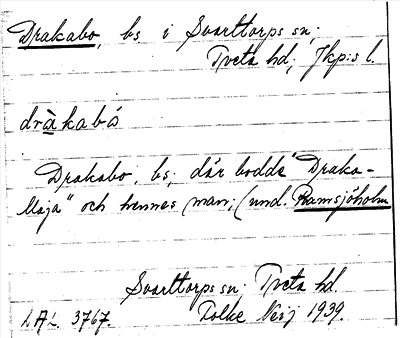 Drakabo, bs i Svarttorps sn;
Tveta hd; Jkp:s l.
dràkabó
Drakabo, bs; där bodde "Draka-
Maja" och hennes man; (und. Ramsjöholm
Svarttorps sn. Tveta hd.
1.A1. 3767. Folke Neij 1939.